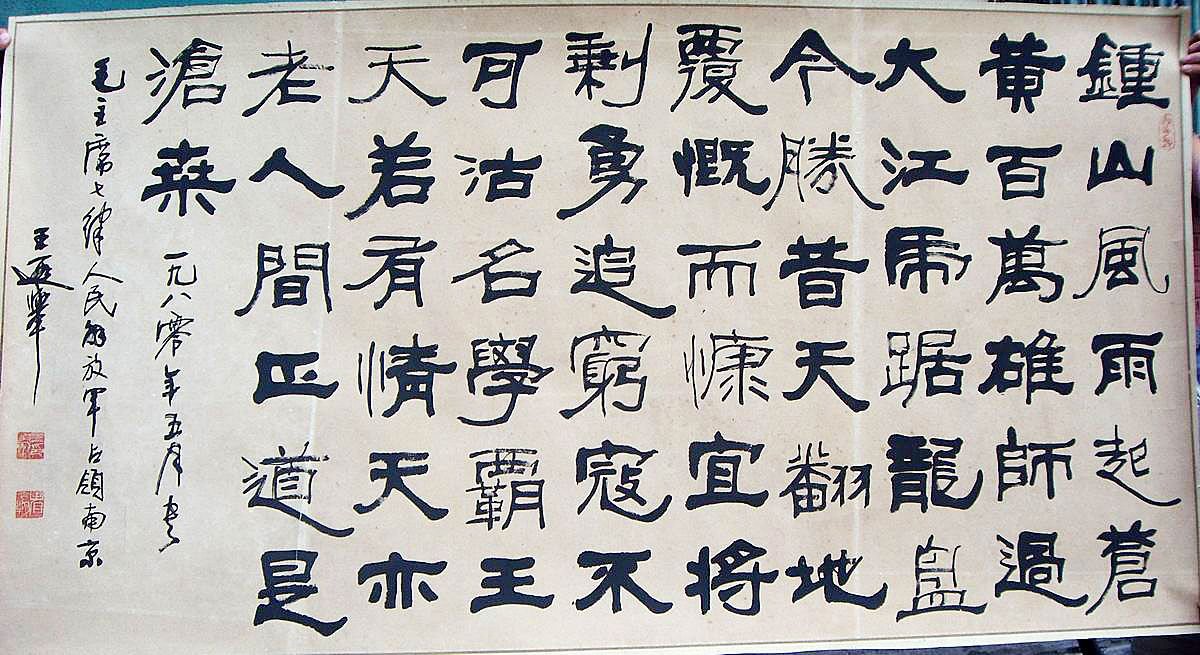 鍾山風雨起蒼
黄百萬雄師過
大江虎踞龍盘
今勝昔天翻地
覆慨而慷宜將
剩勇追窮寇不
可沽名學覇王
天若有情天亦
老人間正道是
滄桒
一九八零年五月书
毛主席七律人民解放軍占領南京
王遐舉